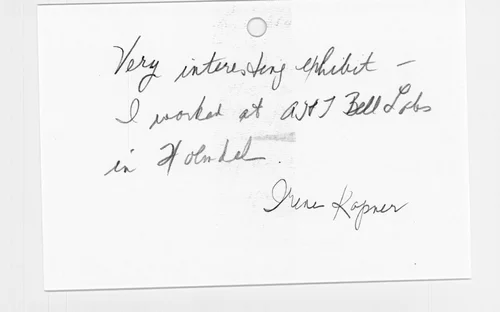 Very interesting exhibit –
I worked at AT&T Bell Labs
in Holmdel.
Irene Kapner